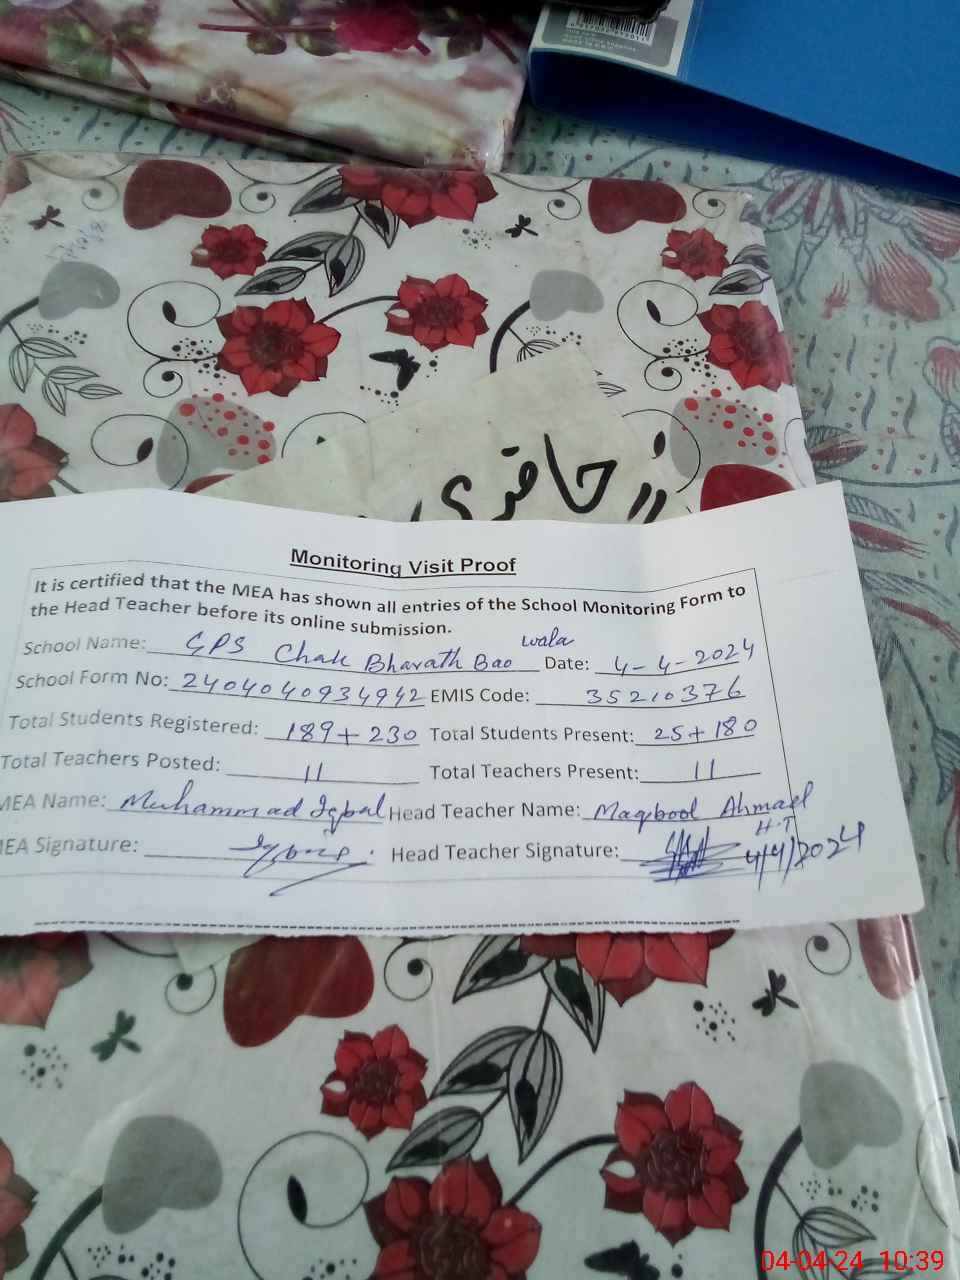 حاضری
Monitoring Visit Proof
It is certified that the MEA has shown all entries of the School Monitoring Form to
the Head Teacher before its online submission.
School Name: GPS Chak Bharath Bao wala Date: 4-4-2024
School Form No: 2404040934942 EMIS Code: 35210376
Total Students Registered: 189+230 Total Students Present: 25+180
Total Teachers Posted: 11 Total Teachers Present: 11
MEA Name: Muhammad Iqbal Head Teacher Name: Maqbool Ahmad
H.T
MEA Signature: Head Teacher Signature: 4/4/2024
04-04-24 10:39